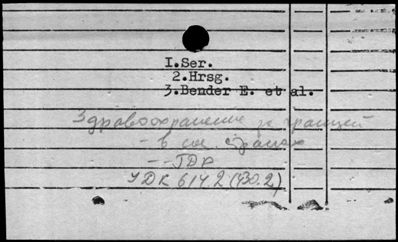 1.Ser.
2.Hrsg.
3.Bender E. et al.
Здравоохранение за границей
- в соц. странах
-- ГДР
УДК 614.2(430.2)